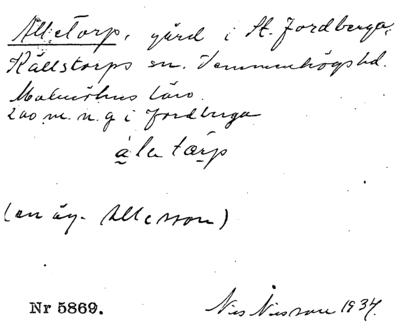 Alletorp, gård i St. Jordberga,
Källstorps sn. Vemmenhögs hd.
Malmöhus län.
200 m. n. g i Jordberga
a la tærp
(en äg. Allesson)
Nr 5869.
Nils Nilsson 1934.